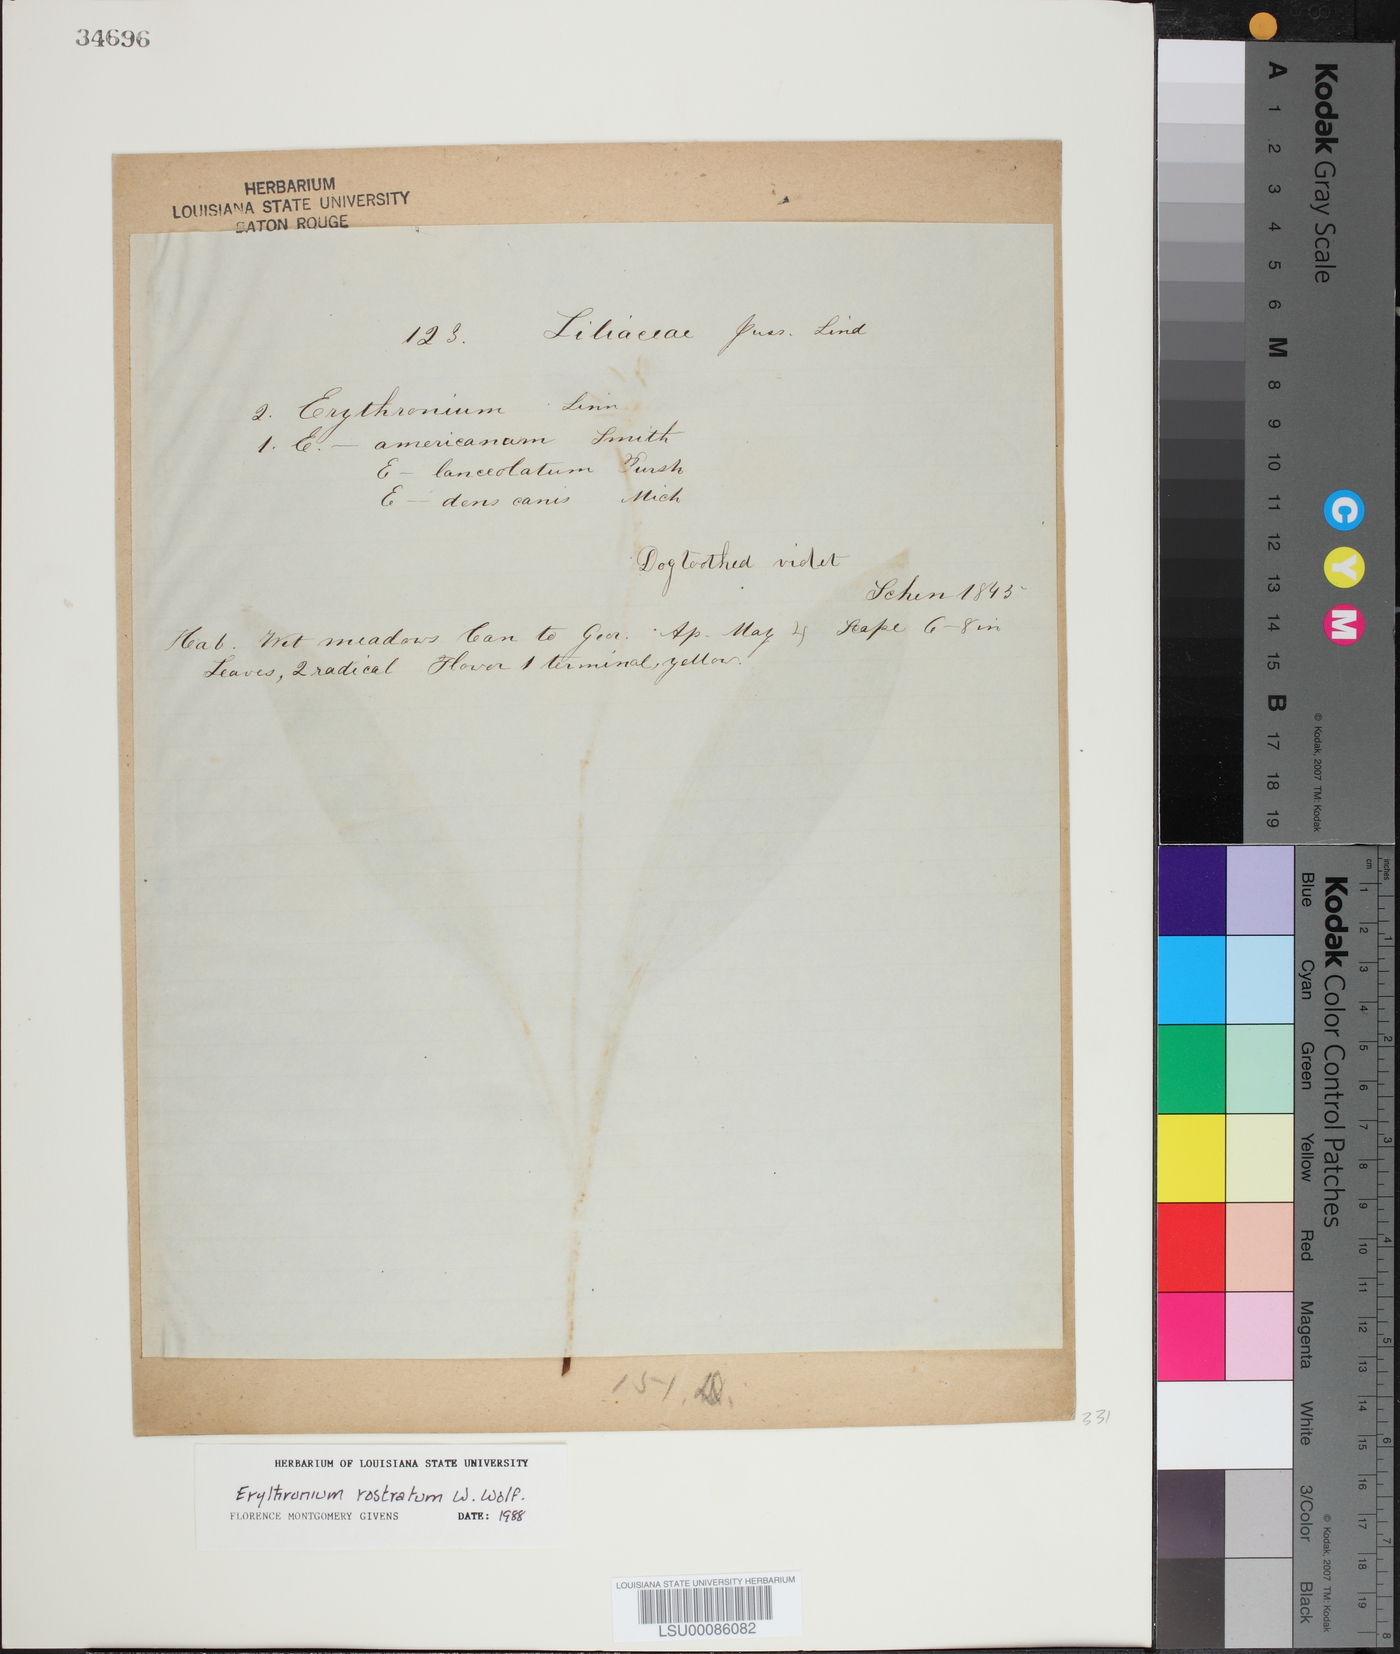 34696
HERBARIUM
LOUISIANA STATE UNIVERSITY
BATON ROUGE
123. Liliaceae Juss. Lind
2. Erythronium Linn
1. E. — americanum Smith
E — lanceolatum Pursh
E — dens canis Mich
Dogtoothed violet
Schen 1845
Hab. Wet meadows Can to Geor. Ap. May ♃ Scape 6–8 in
Leaves, 2 radical Flower 1 terminal, yellow.
151.
331
HERBARIUM OF LOUISIANA STATE UNIVERSITY
Erythronium rostratum W. Wolf.
FLORENCE MONTGOMERY GIVENS DATE: 1988
LOUISIANA STATE UNIVERSITY HERBARIUM
LSU00086082
Kodak Gray Scale
A 1 2 3 4 5 6 M 8 9 10 11 12 13 14 15 B 17 18 19
C Y M
© Kodak, 2007 TM: Kodak
Kodak Color Control Patches
Blue Cyan Green Yellow Red Magenta White 3/Color Black
© Kodak, 2007 TM: Kodak
cm 1 2 3 4 5 6 7 8 9 10 11 12 13 14 15 16 17 18 19
inches 1 2 3 4 5 6 7 8